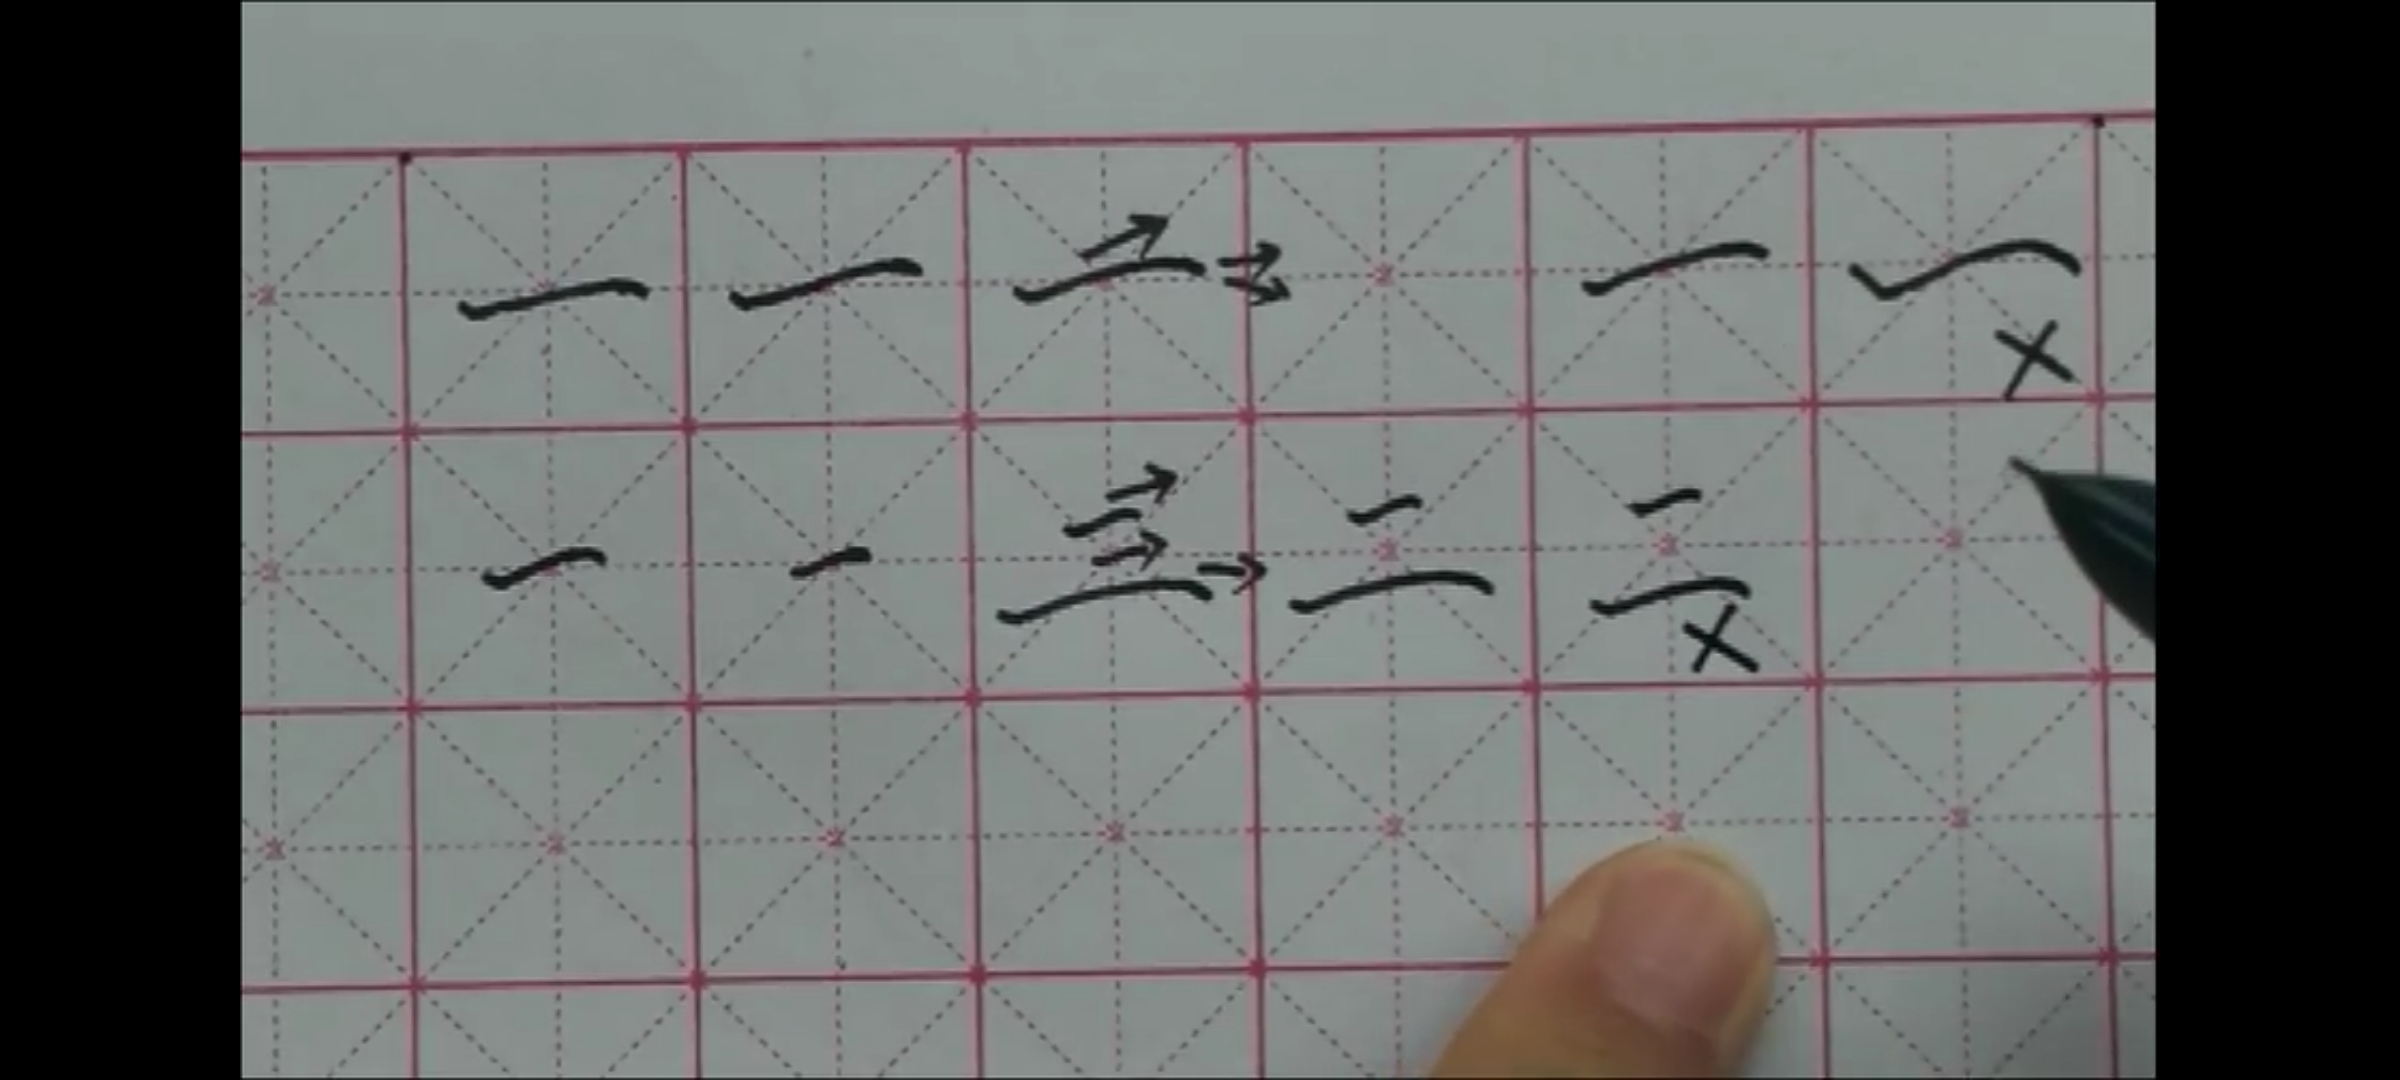 一 一 一 一 一 ×
一 一 二 二 二 ×